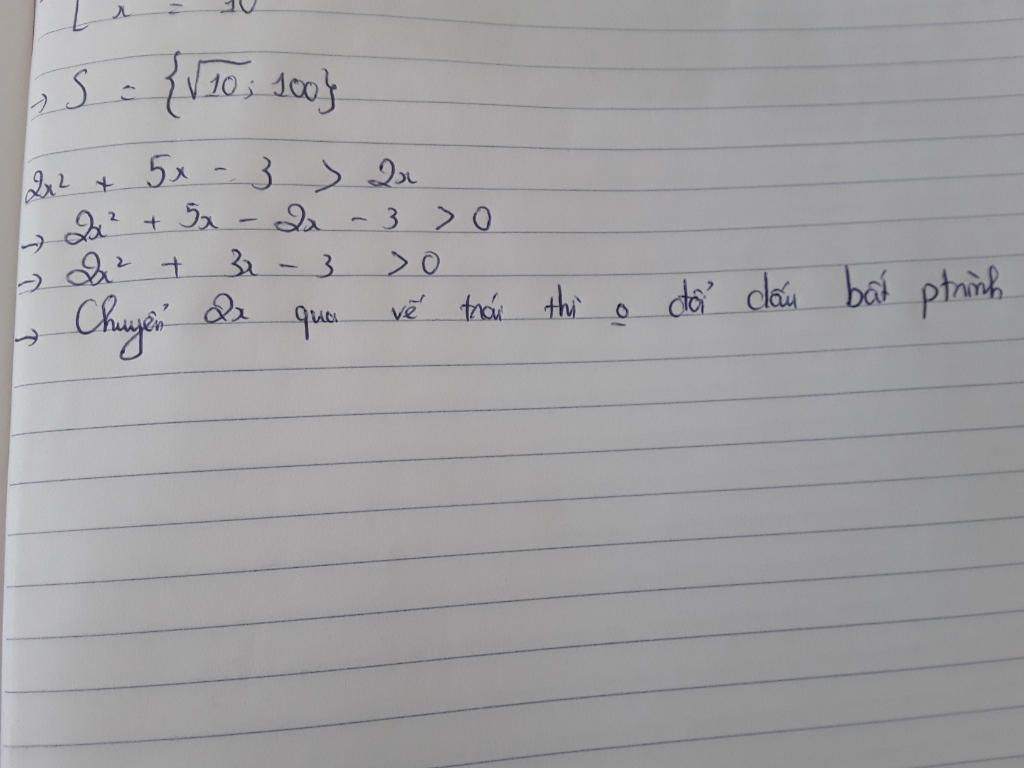 [ x = 10
→ S = {√10; 100}
2x² + 5x - 3 > 2x
→ 2x² + 5x - 2x - 3 > 0
→ 2x² + 3x - 3 > 0
→ Chuyển 2x qua vế trái thì o đổi dấu bất ptrình